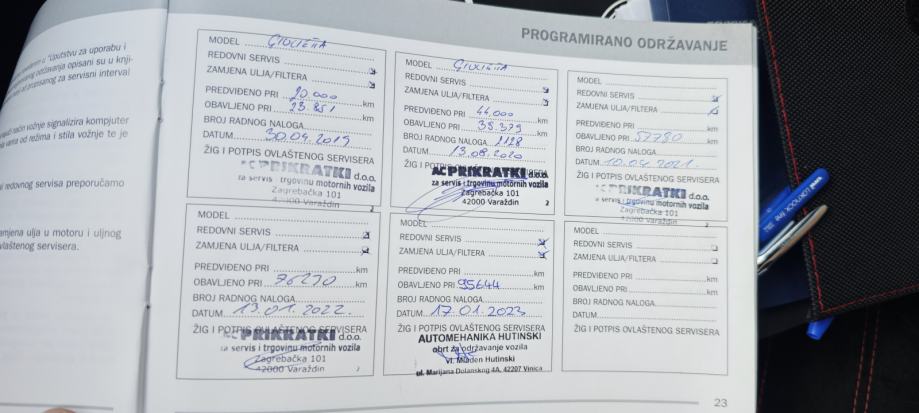 "Uputstvu za uporabu i
održavanja opisani su u knji-
za servisni interval
vožnje signalizira kompjuter
od režima i stila vožnje te je
redovnog servisa preporučamo
ulja u motoru i uljnog
servisera.
PROGRAMIRANO ODRŽAVANJE
MODEL Giulietta
REDOVNI SERVIS
ZAMJENA ULJA/FILTERA
PREDVIĐENO PRI 20 000 km
OBAVLJENO PRI 23 851 km
BROJ RADNOG NALOGA
DATUM 30.04.2019
ŽIG I POTPIS OVLAŠTENOG SERVISERA
AC PRIKRATKI d.o.o.
za servis i trgovinu motornih vozila
Zagrebačka 101
42000 Varaždin
2
MODEL Giulietta
REDOVNI SERVIS
ZAMJENA ULJA/FILTERA
PREDVIĐENO PRI 44.000 km
OBAVLJENO PRI 38.379 km
BROJ RADNOG NALOGA 1128
DATUM 13.08.2020
ŽIG I POTPIS OVLAŠTENOG SERVISERA
AC PRIKRATKI d.o.o.
za servis i trgovinu motornih vozila
Zagrebačka 101
42000 Varaždin
2
MODEL
REDOVNI SERVIS
ZAMJENA ULJA/FILTERA
PREDVIĐENO PRI km
OBAVLJENO PRI 57780 km
BROJ RADNOG NALOGA
DATUM 10.04.2021.
ŽIG I POTPIS OVLAŠTENOG SERVISERA
AC PRIKRATKI d.o.o.
za servis i trgovinu motornih vozila
Zagrebačka 101
42000 Varaždin
2
MODEL
REDOVNI SERVIS
ZAMJENA ULJA/FILTERA
PREDVIĐENO PRI km
OBAVLJENO PRI 76270 km
BROJ RADNOG NALOGA
DATUM 13.01.2022.
ŽIG I POTPIS OVLAŠTENOG SERVISERA
AC PRIKRATKI d.o.o.
za servis i trgovinu motornih vozila
Zagrebačka 101
42000 Varaždin
MODEL
REDOVNI SERVIS
ZAMJENA ULJA/FILTERA
PREDVIĐENO PRI km
OBAVLJENO PRI 95644 km
BROJ RADNOG NALOGA
DATUM 17.01.2023
ŽIG I POTPIS OVLAŠTENOG SERVISERA
AUTOMEHANIKA HUTINSKI
obrt za održavanje vozila
vl. Mladen Hutinski
ul. Marijana Dolanskog 4A, 42207 Vinica
MODEL
REDOVNI SERVIS
ZAMJENA ULJA/FILTERA
PREDVIĐENO PRI km
OBAVLJENO PRI km
BROJ RADNOG NALOGA
DATUM
ŽIG I POTPIS OVLAŠTENOG SERVISERA
23